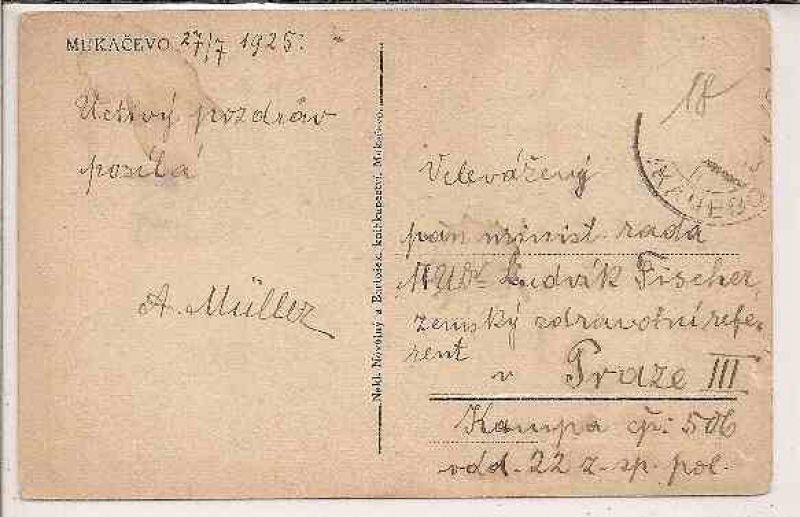 MUKAČEVO 27/7 1925.
Uctivý pozdrav
posílá
A. Müller
Nakl. Novotný a Bartošek, knihkupectví, Mukačevo.
18
Velevážený
pan minist. rada
MUDr Ludvík Fischer,
zemský zdravotní refe-
rent
v Praze III
Kampa čp: 506
odd. 22 z. sp. pol.